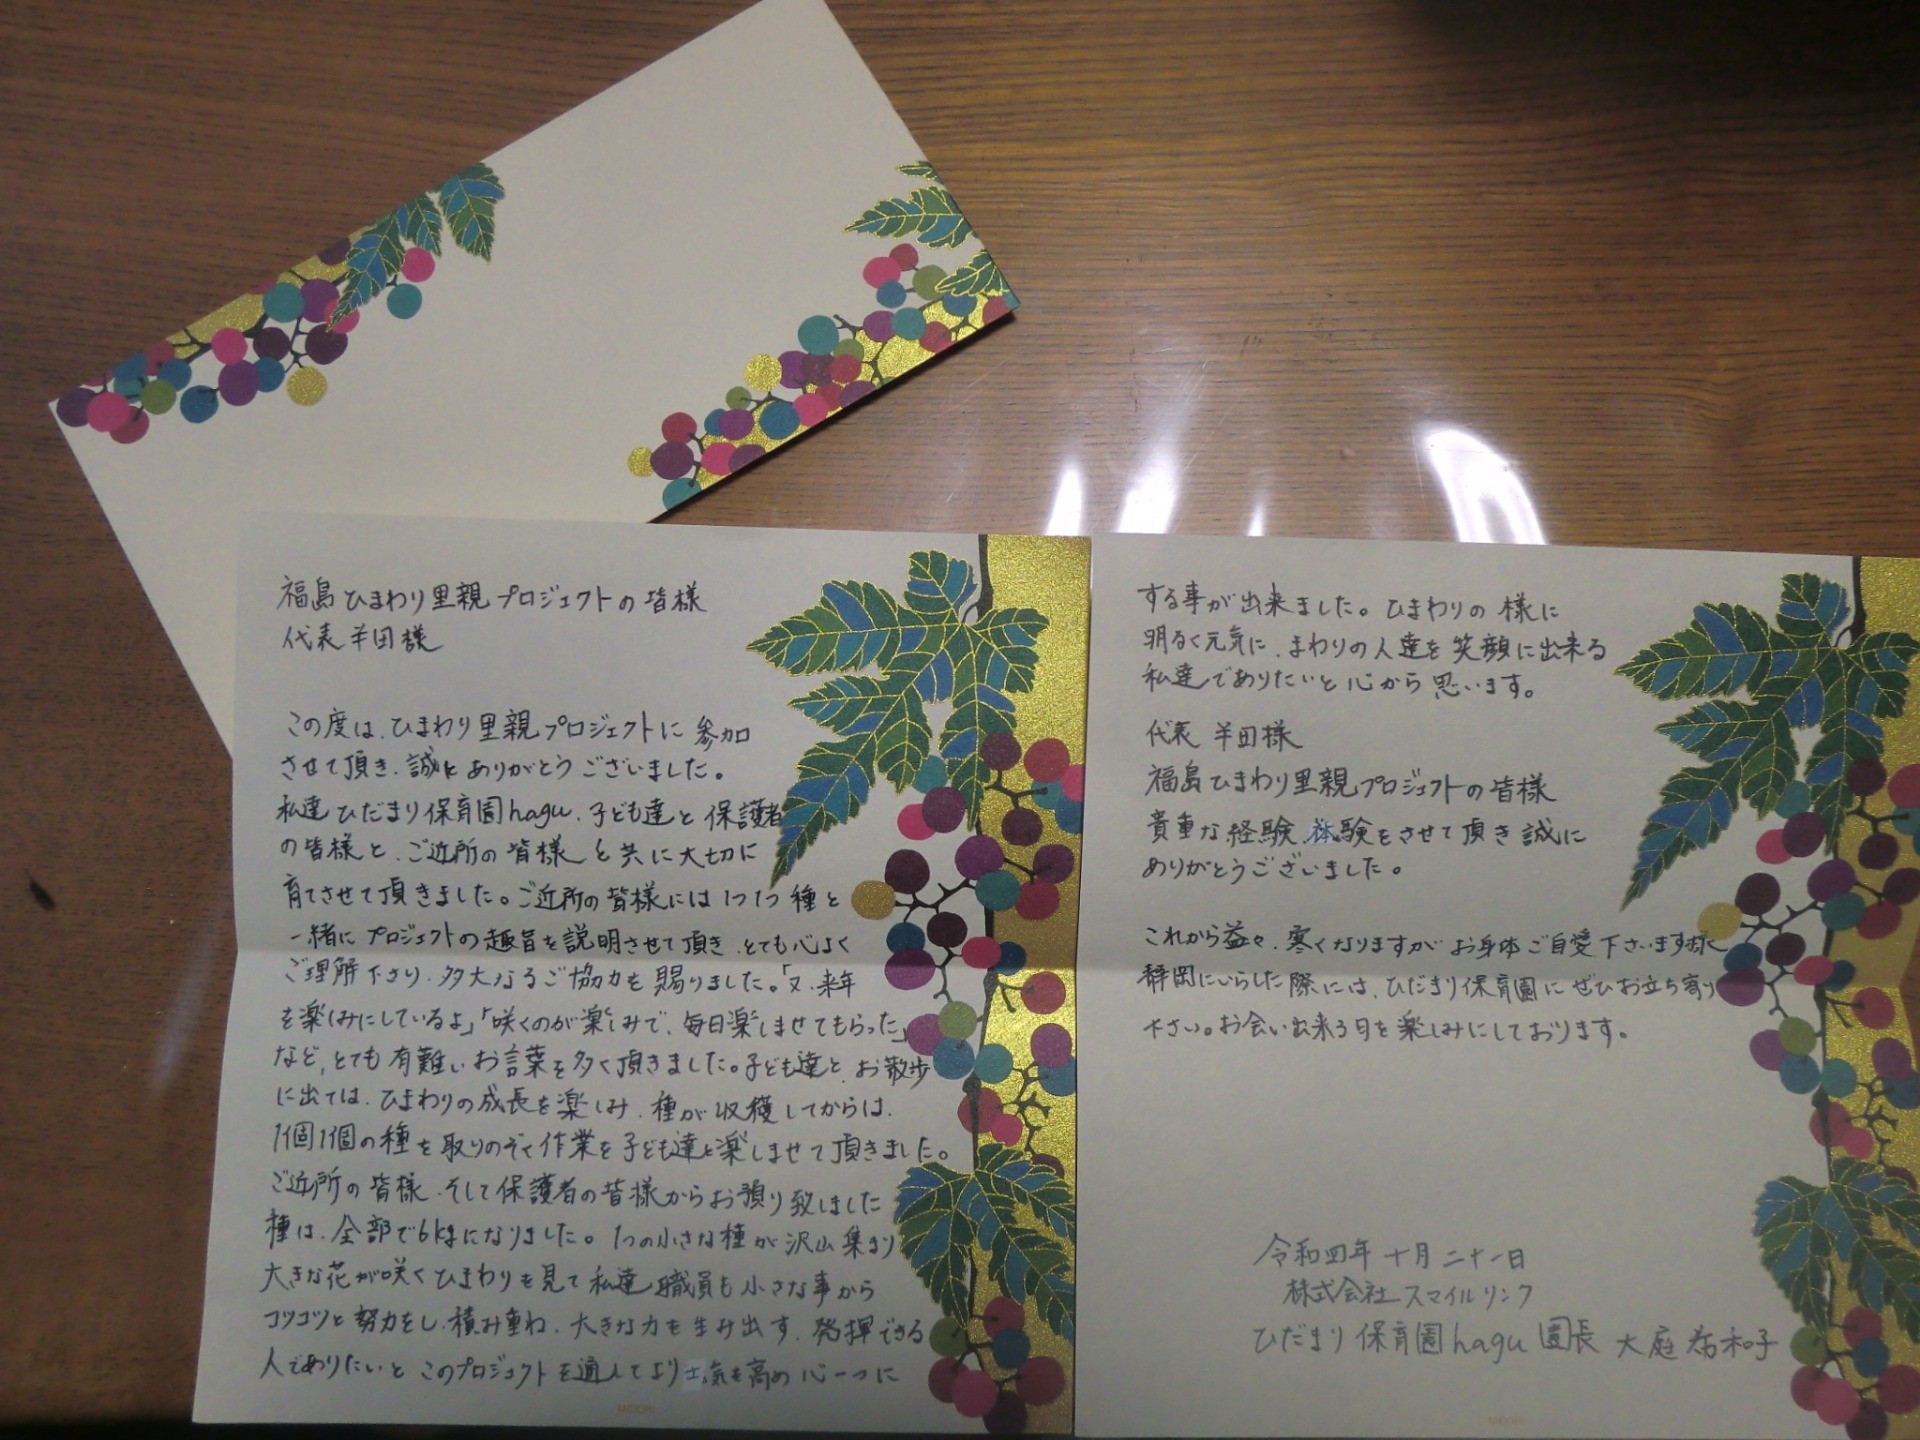 福島ひまわり里親プロジェクトの皆様
代表 半田様
この度は、ひまわり里親プロジェクトに参加
させて頂き、誠にありがとうございました。
私達ひだまり保育園hagu、子ども達と保護者
の皆様と、ご近所の皆様と共に大切に
育てさせて頂きました。ご近所の皆様には1つ1つ種と
一緒にプロジェクトの趣旨を説明させて頂き、とても心よく
ご理解下さり、多大なるご協力を賜りました。「又、来年
を楽しみにしているよ」「咲くのが楽しみで、毎日楽しませてもらった」
など、とても有難いお言葉を多く頂きました。子ども達と、お散歩
に出ては、ひまわりの成長を楽しみ、種が収穫してからは、
1個1個の種を取りのぞく作業を子ども達と楽しませて頂きました。
ご近所の皆様、そして保護者の皆様からお預り致しました
種は、全部で6kgになりました。1つの小さな種が沢山集まり
大きな花が咲くひまわりを見て私達職員も小さな事から
コツコツと努力をし、積み重ね、大きな力を生み出す、発揮できる
人でありたいと このプロジェクトを通してより士気を高め心一つに
する事が出来ました。ひまわりの様に
明るく元気に、まわりの人達を笑顔に出来る
私達でありたいと心から思います。
代表 半田様
福島ひまわり里親プロジェクトの皆様
貴重な経験、体験をさせて頂き誠に
ありがとうございました。
これから益々、寒くなりますがお身体ご自愛下さいます様
静岡にいらした際には、ひだまり保育園にぜひお立ち寄り
下さい。お会い出来る日を楽しみにしております。
令和四年 十月二十一日
株式会社スマイルリンク
ひだまり保育園hagu 園長 大庭希和子